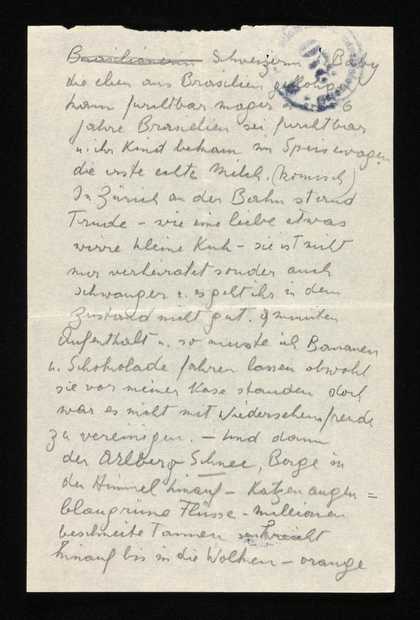 Brasilianerin Schweizerin Baby
die eben aus Brasilien
kam furchtbar mager 6
Jahre Brasilien sei furchtbar
u. ihr Kind bekam im Speisewagen
die erste echte Milch. (komisch)
In Zürich an der Bahn stand
Trude – wie eine liebe etwas
wirre kleine Kuh – sie ist nicht
nur verheiratet sonder auch
schwanger u. es geht ihr in dem
Zustand nicht gut. 9 minuten
Aufenthalt u. so musste ich Bananen
u. Schokolade fahren lassen obwohl
sie vor meiner Nase standen doch
war es nicht mit Wiedersehensfreude
zu vereinigen. – Und dann
der Arlberg Schnee, Berge in
den Himmel hinauf – Katzenaugen =
blaugrüne Flüsse – millionen
beschneite Tannen
hinauf bis in die Wolken – orange